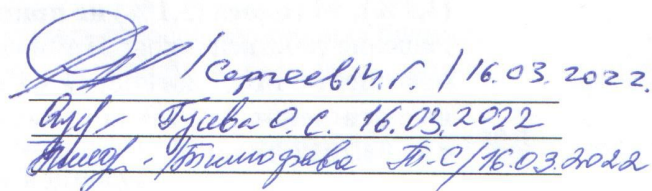 / Сергеев М.Г. / 16.03.2022.
Гусева О.С. 16.03.2022
Т.С / 16.03.2022